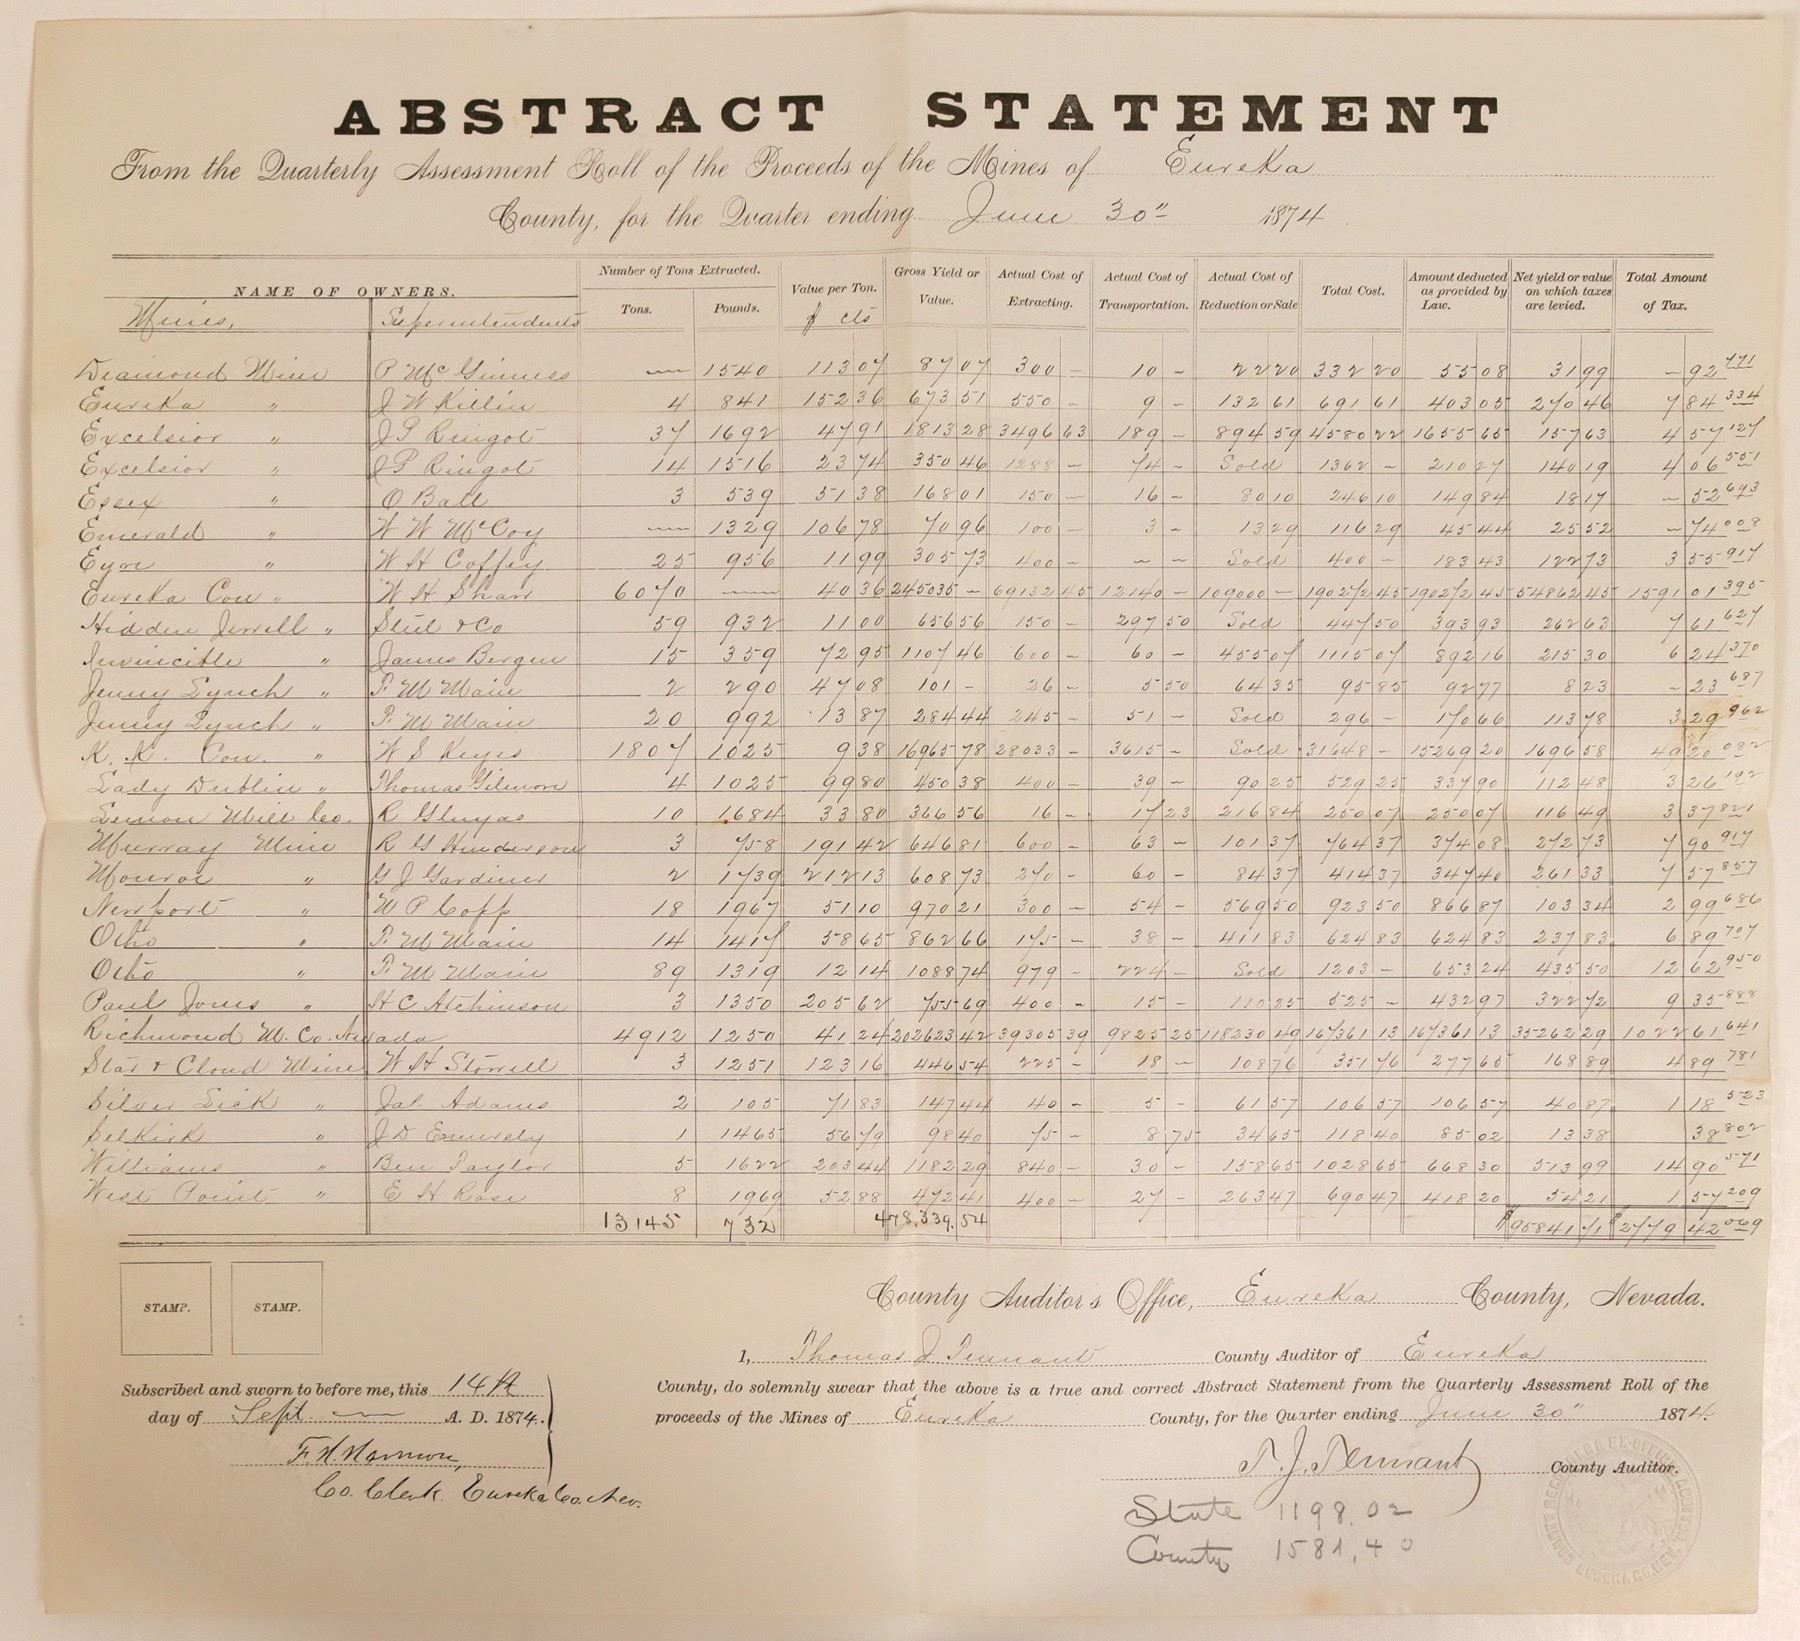 ABSTRACT STATEMENT
From the Quarterly Assessment Roll of the Proceeds of the Mines of Eureka
County, for the Quarter ending June 30" 1874
NAME OF OWNERS. Number of Tons Extracted. Value per Ton. Gross Yield or Value. Actual Cost of Extracting. Actual Cost of Transportation. Actual Cost of Reduction or Sale Total Cost. Amount deducted as provided by Law. Net yield or value on which taxes are levied. Total Amount of Tax.
Mines, Superintendents Tons. Pounds. $ cts
Diamond Mine P McGinnes — 1540 113 07 87 07 300 – 10 – 22 20 332 20 55 08 31 99 – 92 771
Eureka " J W Killin 4 841 152 36 673 51 550 – 9 – 132 61 691 61 403 05 270 46 7 84 334
Excelsior " J P Ringot 37 1692 47 91 1813 28 3496 63 189 – 894 59 4580 22 1655 65 157 63 4 57 127
Excelsior " J P Ringot 14 1516 23 74 350 46 1288 – 74 – Sold 1362 – 210 27 140 19 4 06 551
Essex " O Ball 3 539 51 38 168 01 150 – 16 – 80 10 246 10 149 84 18 17 – 52 693
Emerald " W W McCoy — 1329 106 78 70 96 100 – 3 – 13 29 116 29 45 44 25 52 – 74 008
Eyre " W H Coffey 25 956 11 99 305 73 400 – – – Sold 400 – 183 43 122 73 3 55 917
Eureka Con " W H Shaw 6070 — 40 36 245035 – 69132 45 12140 – 109000 – 190272 45 190272 45 54862 45 1591 01 395
Hidden Jewell " Steel & Co 59 932 11 00 656 56 150 – 297 50 Sold 447 50 393 93 262 63 7 61 627
Invincible " James Bergen 15 359 72 95 1107 46 600 – 60 – 455 07 1115 07 892 16 215 30 6 24 370
Jenny Lynch " F. M Main 2 290 47 08 101 – 26 – 5 50 64 35 95 85 92 77 8 23 – 23 687
Jenny Lynch " F. M Main 20 992 13 87 284 44 245 – 51 – Sold 296 – 170 66 113 78 3 29 962
K. K. Con. " W S Keyes 1807 1025 9 38 16965 78 28033 – 3615 – Sold 31648 – 15269 20 1696 58 49 20 082
Lady Dublin " Thomas Gilmore 4 1025 99 80 450 38 400 – 39 – 90 25 529 25 337 90 112 48 3 26 192
Lemon Mill Co. R Gluyas 10 1684 33 80 366 56 16 – 17 23 216 84 250 07 250 07 116 49 3 37 821
Murray Mine R G Hinderson 3 758 191 42 646 81 600 – 63 – 101 37 764 37 374 08 272 73 7 90 917
Monroe " G J Gardiner 2 1739 212 13 608 73 270 – 60 – 84 37 414 37 347 40 261 33 7 57 857
Newport " W P Copp 18 1967 51 10 970 21 300 – 54 – 569 50 923 50 866 87 103 34 2 99 686
Otho " F. M Main 14 1417 58 65 862 66 175 – 38 – 411 83 624 83 624 83 237 83 6 89 707
Otho " F. M Main 89 1319 12 14 1088 74 979 – 224 – Sold 1203 – 653 24 435 50 12 62 950
Paul Jones " H C Atchinson 3 1350 205 62 755 69 400 – 15 – 110 25 525 – 432 97 322 72 9 35 888
Richmond M. Co. Nevada 4912 1250 41 24 202623 42 39305 39 9825 25 118230 49 167361 13 167361 13 35262 29 1022 61 641
Star & Cloud Mine W H Stowell 3 1251 123 16 446 54 225 – 18 – 108 76 351 76 277 65 168 89 4 89 781
Silver Lick " Jas. Adams 2 105 71 83 147 44 40 – 5 – 61 57 106 57 106 57 40 87 1 18 523
Selkirk " J D Emmersly 1 1465 56 79 98 40 75 – 8 75 34 65 118 40 85 02 13 38 38 802
Williams " Ben Taylor 5 1622 203 44 1182 29 840 – 30 – 158 65 1028 65 668 30 513 99 14 90 571
West Point " E H Rose 8 1969 52 88 472 41 400 – 27 – 263 47 690 47 418 20 54 21 1 57 209
13145 732 478,339.54 $95841 71 $2779 42 069
STAMP. STAMP.
County Auditor's Office, Eureka County, Nevada.
I, Thomas J Tennant County Auditor of Eureka
County, do solemnly swear that the above is a true and correct Abstract Statement from the Quarterly Assessment Roll of the
proceeds of the Mines of Eureka County, for the Quarter ending June 30" 1874.
Subscribed and sworn to before me, this 14th
day of Sept. — A. D. 1874.
F. H. Harmon,
Co. Clerk. Eureka Co. Nev.
T. J. Tennant County Auditor.
State 1198.02
County 1581.40